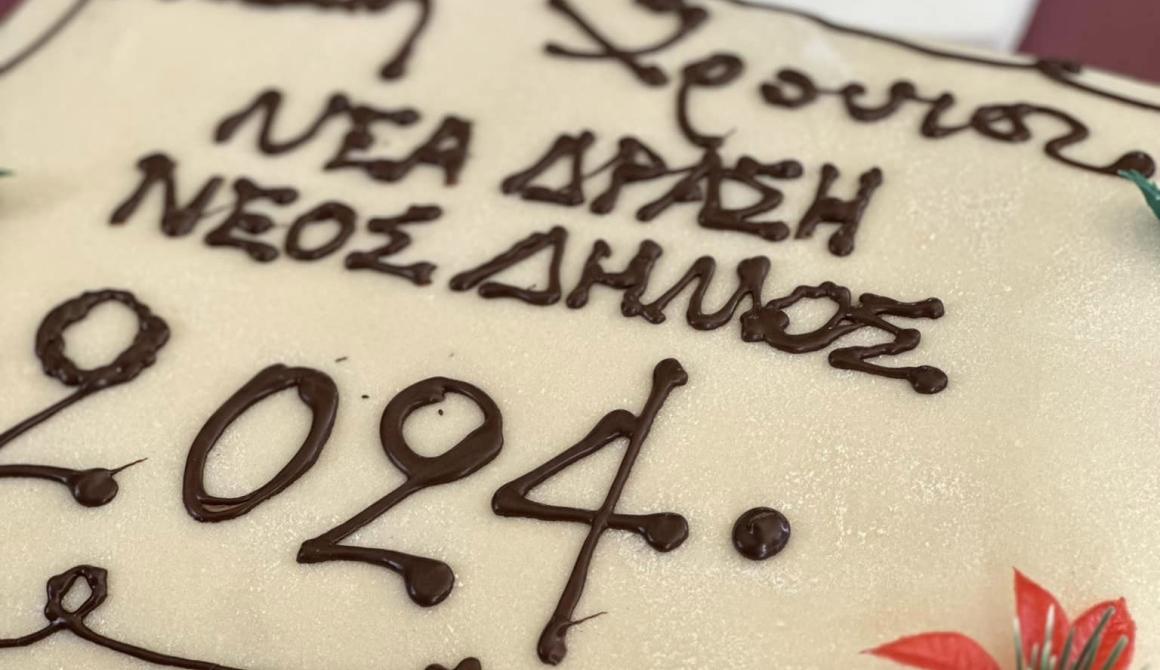 Χρονια
ΝΕΑ ΔΡΑΣΗ
ΝΕΟΣ ΔΗΜΟΣ
2024.